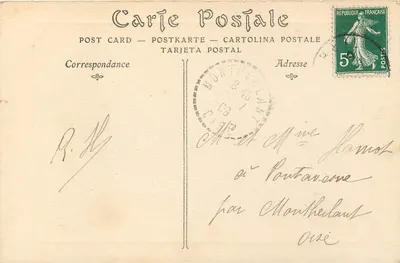 Carte Postale
POST CARD — POSTKARTE — CARTOLINA POSTALE
TARJETA POSTAL
Correspondance
Adresse
RÉPUBLIQUE FRANÇAISE
5c
R. H
M et Mme Hamot
à Pontavesne
par Montherlant
Oise